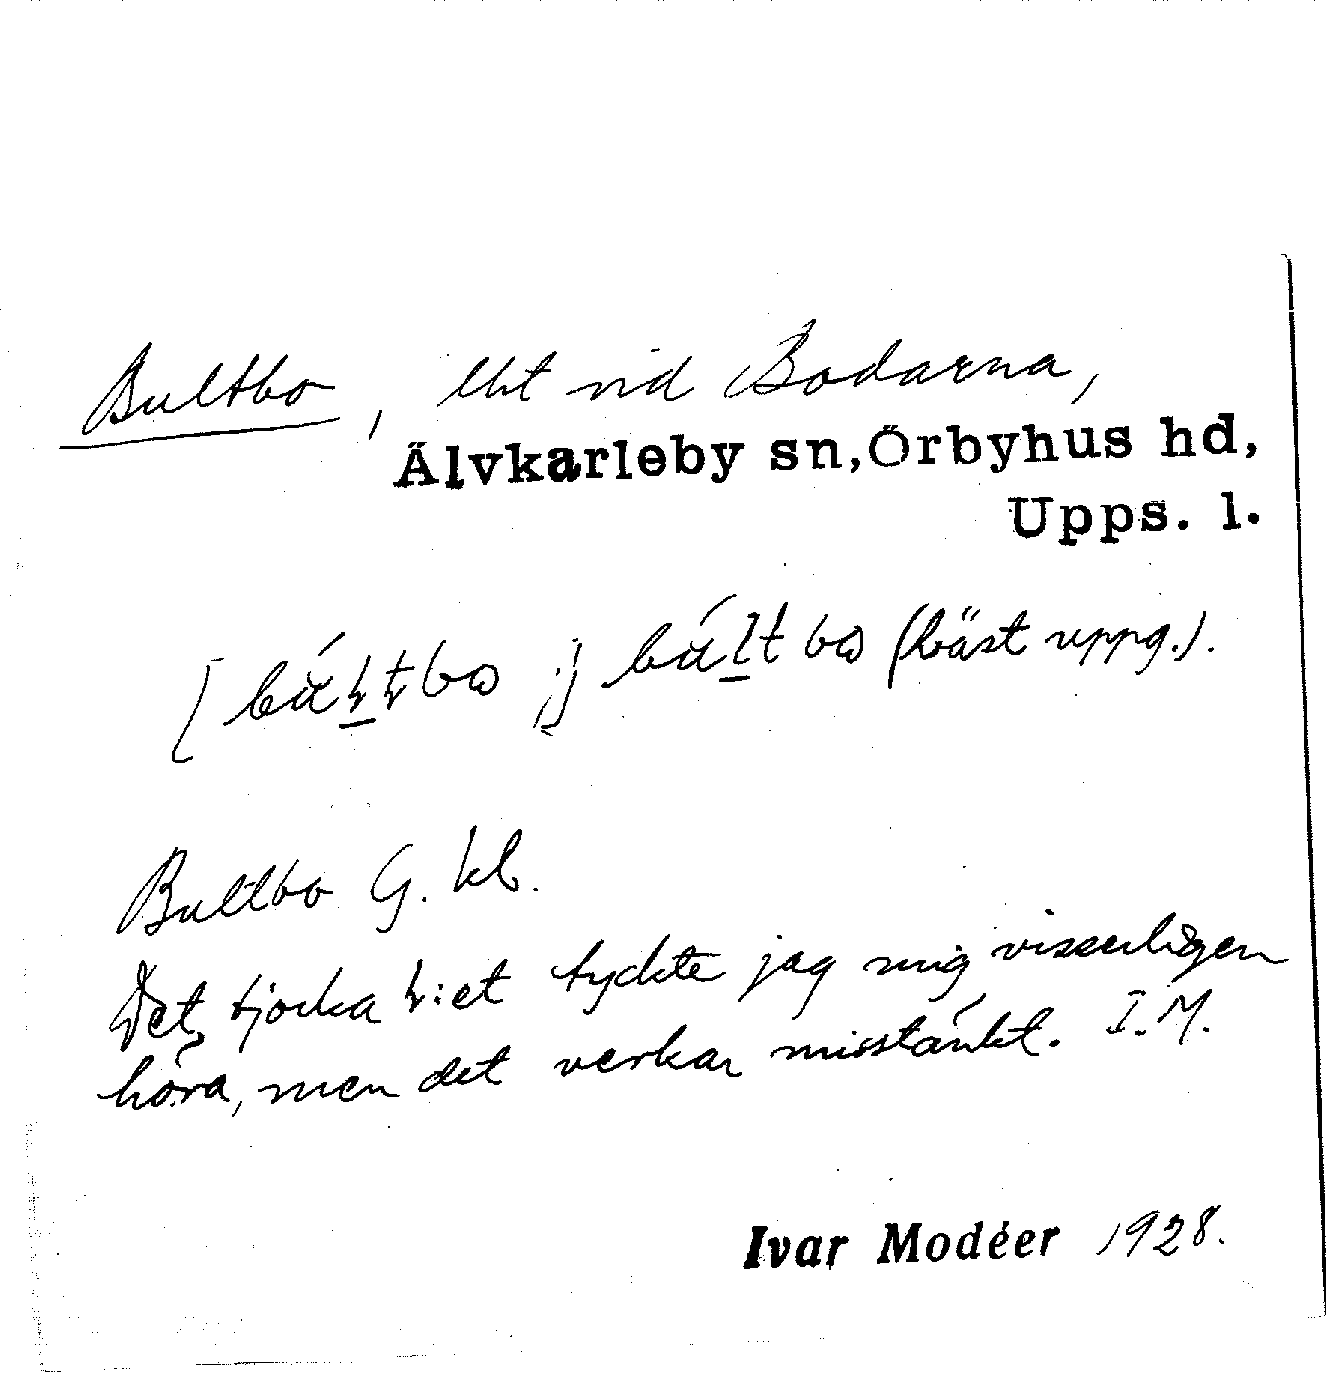 Bultbo, lht vid Bodarna,
Älvkarleby sn, Örbyhus hd,
Upps. l.
[búꞎtbω ;] búltbω (bäst uppg.).
Bultbo G. kb.
Det tjocka ꞎ:et tyckte jag mig visserligen
höra, men det verkar misstänkt. I.M.
Ivar Modéer 1928.